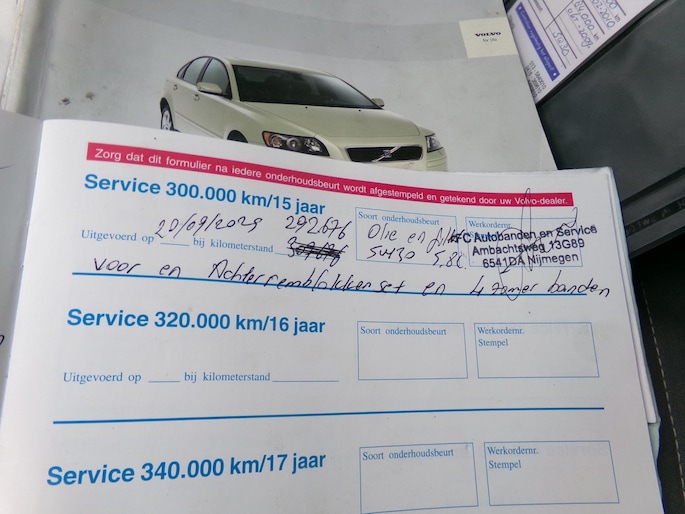 VOLVO
for life
Zorg dat dit formulier na iedere onderhoudsbeurt wordt afgestempeld en getekend door uw Volvo-dealer.
Service 300.000 km/15 jaar
Soort onderhoudsbeurt
Werkordernr.
Uitgevoerd op 20/09/2029 bij kilometerstand 292676
Olie en
5W30 5.8L
Autobanden en Service
Ambachtsweg 13G89
6541DA Nijmegen
Voor en Achterremblokken set en 4 zomer banden
Service 320.000 km/16 jaar
Soort onderhoudsbeurt
Werkordernr.
Stempel
Uitgevoerd op bij kilometerstand
Service 340.000 km/17 jaar
Soort onderhoudsbeurt
Werkordernr.
Stempel